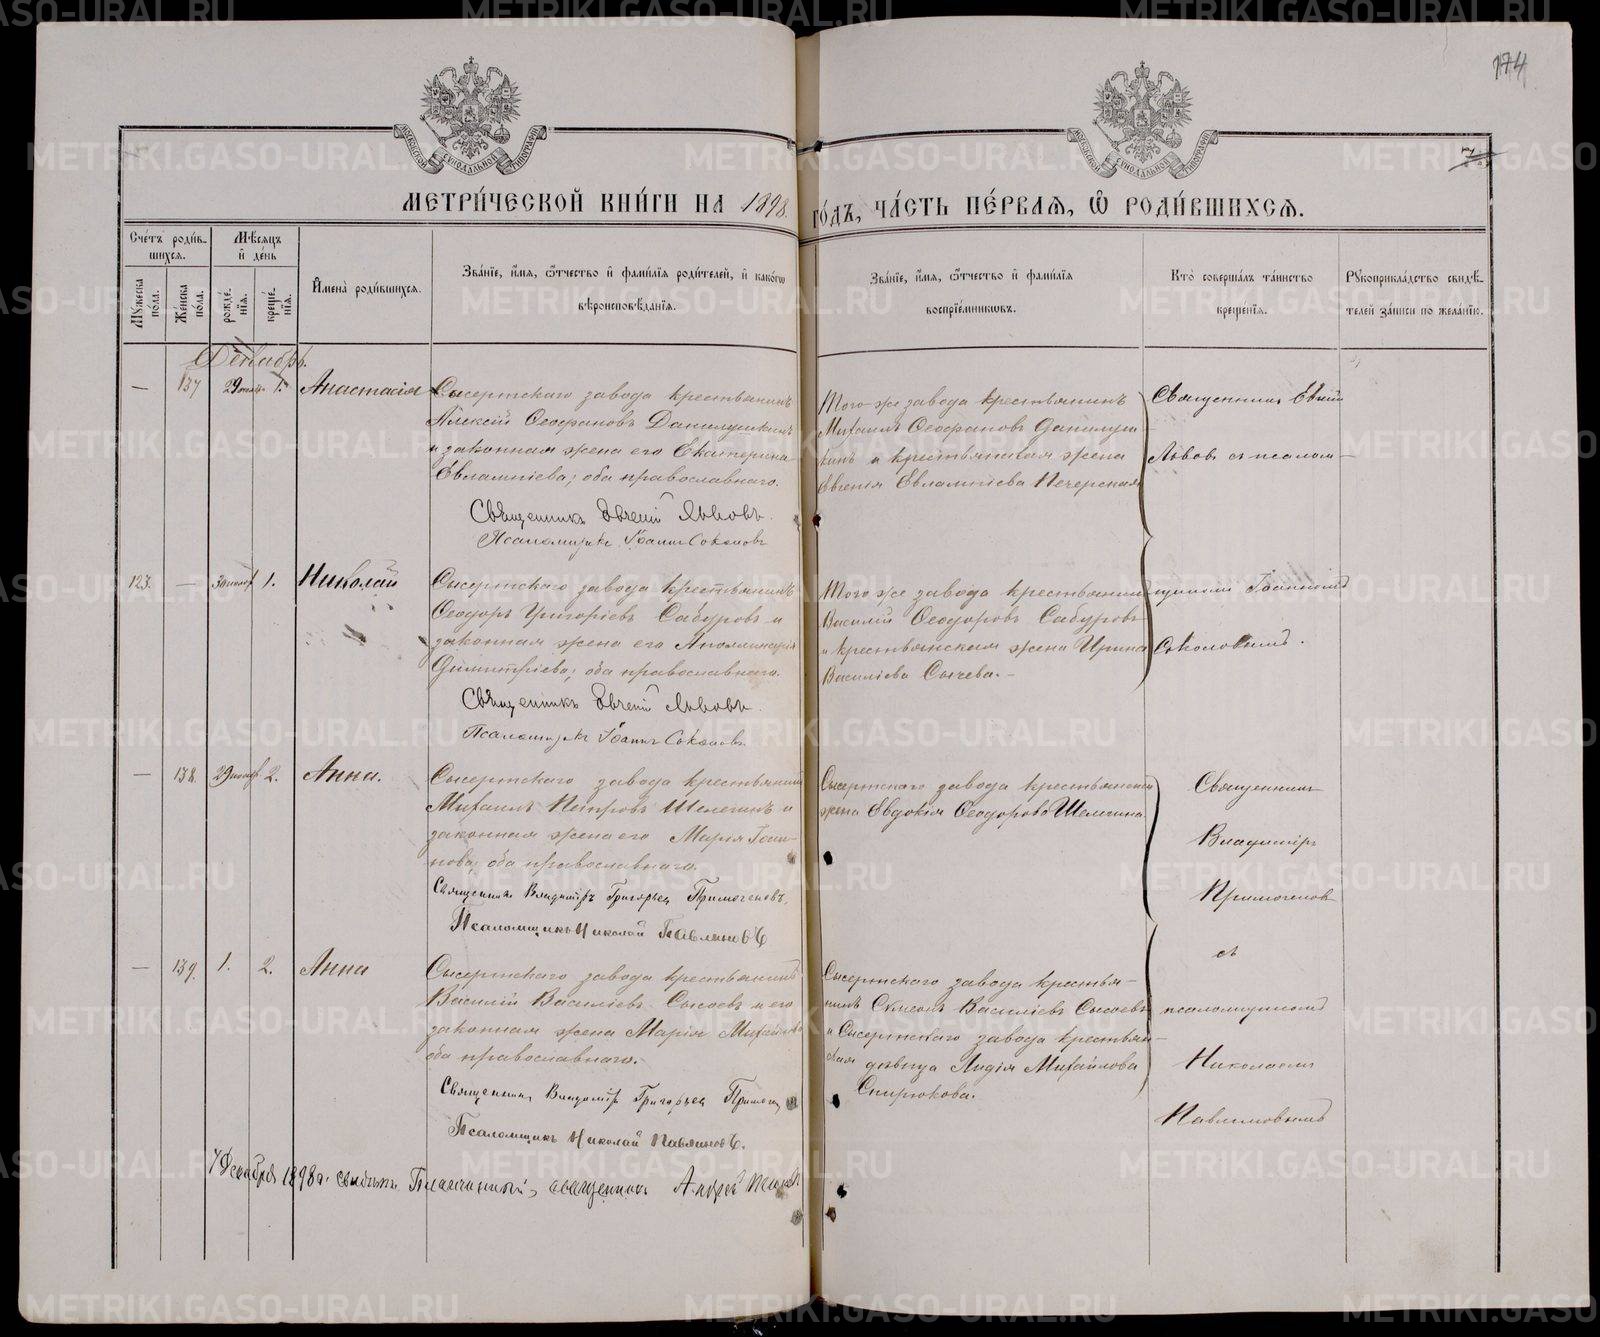 174
7
МОСКОВСКОЙ СѴНОДАЛЬНОЙ ТИПОГРАФІИ
МОСКОВСКОЙ СѴНОДАЛЬНОЙ ТИПОГРАФІИ
МЕТРИ́ЧЕСКОЙ КНИ́ГИ НА 1898.
ГО́ДЪ, ЧА́СТЬ ПЕ́РВАЯ, Ѡ РОДИ́ВШИХСЯ.
Сче́тъ роди́в-
шихся.
Мѣ́сяцъ
и̂ де́нь
Мꙋ́жеска
по́ла.
Же́нска
по́ла.
рожде́-
нїя.
креще́-
нїя.
И̂мена̀ роди́вшихся.
Зва́нїе, и́мя, ѻ́тчество и̂ фами́лїя роди́телей, и̂ како́гѡ
вѣроисповѣ́данїя.
Зва́нїе, и́мя, ѻ́тчество и̂ фами́лїя
воспрїе́мникѡвъ.
Кто̀ соверша́лъ та́инство
креще́нїя.
Рꙋкоприкла́дство свидѣ́-
телей за́писи по жела́нїю.
Декабрь.
— 137 29 ноябр. 1. Анастасія
Сысертскаго завода крестьянинъ
Алексій Ѳеофановъ Данилушкинъ
и законная жена его Екатерина
Евлампіева; оба православнаго.
Священникъ Евгеній Львовъ.
Псаломщикъ Іоаннъ Соколовъ
Того же завода крестьянинъ
Михаилъ Ѳеофановъ Данилуш
кинъ и крестьянская жена
Евгенія Евлампіева Печерская
Священникъ Евгеній
Львовъ съ псалом-
123. — 30 ноябр 1. Николай
Сысертскаго завода крестьянинъ
Ѳеодоръ Григоріевъ Сабуровъ и
законная жена его Аполлинарія
Димитріева; оба православнаго.
Священникъ Евгеній Львовъ.
Псаломщикъ Іоаннъ Соколовъ.
Того же завода крестьянинъ
Василій Ѳеодоровъ Сабуровъ
и крестьянская жена Ирина
Василіева Сычева.-
щикомъ Іоанномъ
Соколовымъ.
— 138. 29 ноябр. 2. Анна.
Сысертскаго завода крестьянинъ
Михаилъ Петровъ Шелегинъ и
законная жена его Марія Іоан-
нова; оба православнаго.
Священникъ Владиміръ Григорьев Примогеновъ.
Псаломщикъ Николай Павлиновъ
Сысертскаго завода крестьянская
жена Евдокія Ѳеодорова Шелегина
Священникъ
Владиміръ
Примогеновъ
съ
— 139. 1. 2. Анна
Сысертскаго завода крестьянинъ
Василій Василіевъ Сысоевъ и его
законная жена Марія Михайлова
оба православнаго.
Священникъ Владиміръ Григорьев
Псаломщикъ Николай Павлиновъ.
Сысертскаго завода крестья-
нинъ Василіевъ Сысоевъ
и Сысертскаго завода крестьян-
ская дѣвица Лидія Михайлова
Спирюкова.
псаломщикомъ
Николаемъ
Павлиновымъ
7 Декабря 1898 г. священникъ Андрей
METRIKI.GASO-URAL.RU